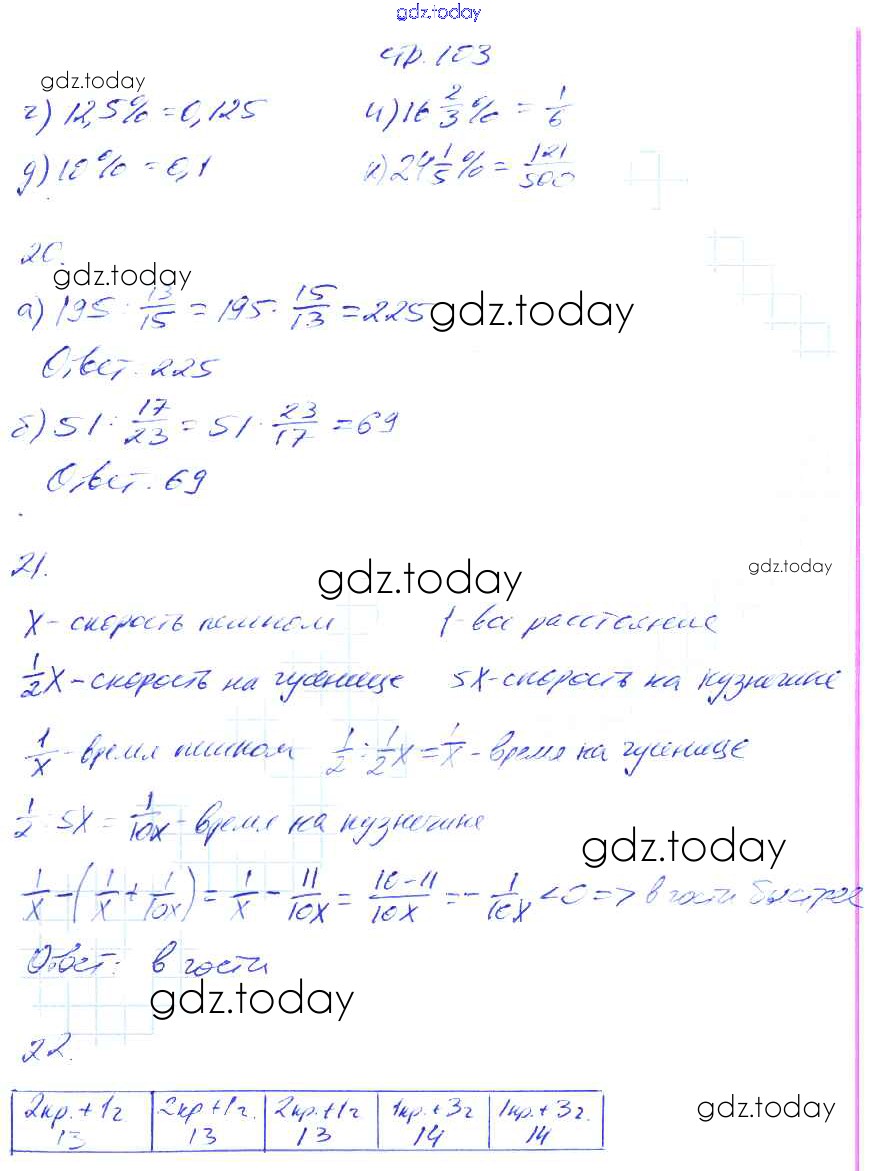 gdz.today
стр. 103
gdz.today
г) 12,5% = 0,125 и) 16 2/3 % = 1/6
д) 10% = 0,1 к) 24 1/5 % = 121/500
20.
gdz.today
а) 195 : 13/15 = 195 · 15/13 = 225
gdz.today
Ответ. 225
б) 51 : 17/23 = 51 · 23/17 = 69
Ответ. 69
21.
gdz.today
gdz.today
x - скорость пешком 1 - все расстояние
1/2 x - скорость на гусенице 5x - скорость на кузнечике
1/x - время пешком 1/2 : 1/2 x = 1/x - время на гусенице
1/2 : 5x = 1/10x - время на кузнечике
gdz.today
1/x - (1/x + 1/10x) = 1/x - 11/10x = 10-11/10x = - 1/10x < 0 => в гости быстрее
Ответ: в гости
gdz.today
22.
2кр. + 1г 2кр + 1г. 2кр. + 1г 1кр. + 3г 1кр. + 3г.
13 13 13 14 14
gdz.today